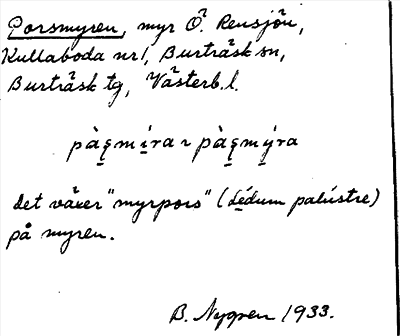 Porsmyren, myr Ö. Rensjön,
Kullaboda nr 1, Burträsk sn,
Burträsk tg, Västerb. l.
pàʂmi̠ra ~ pàʂmýra
det växer "myrpors" (dédum palústre)
på myren.
B. Nygren 1933.